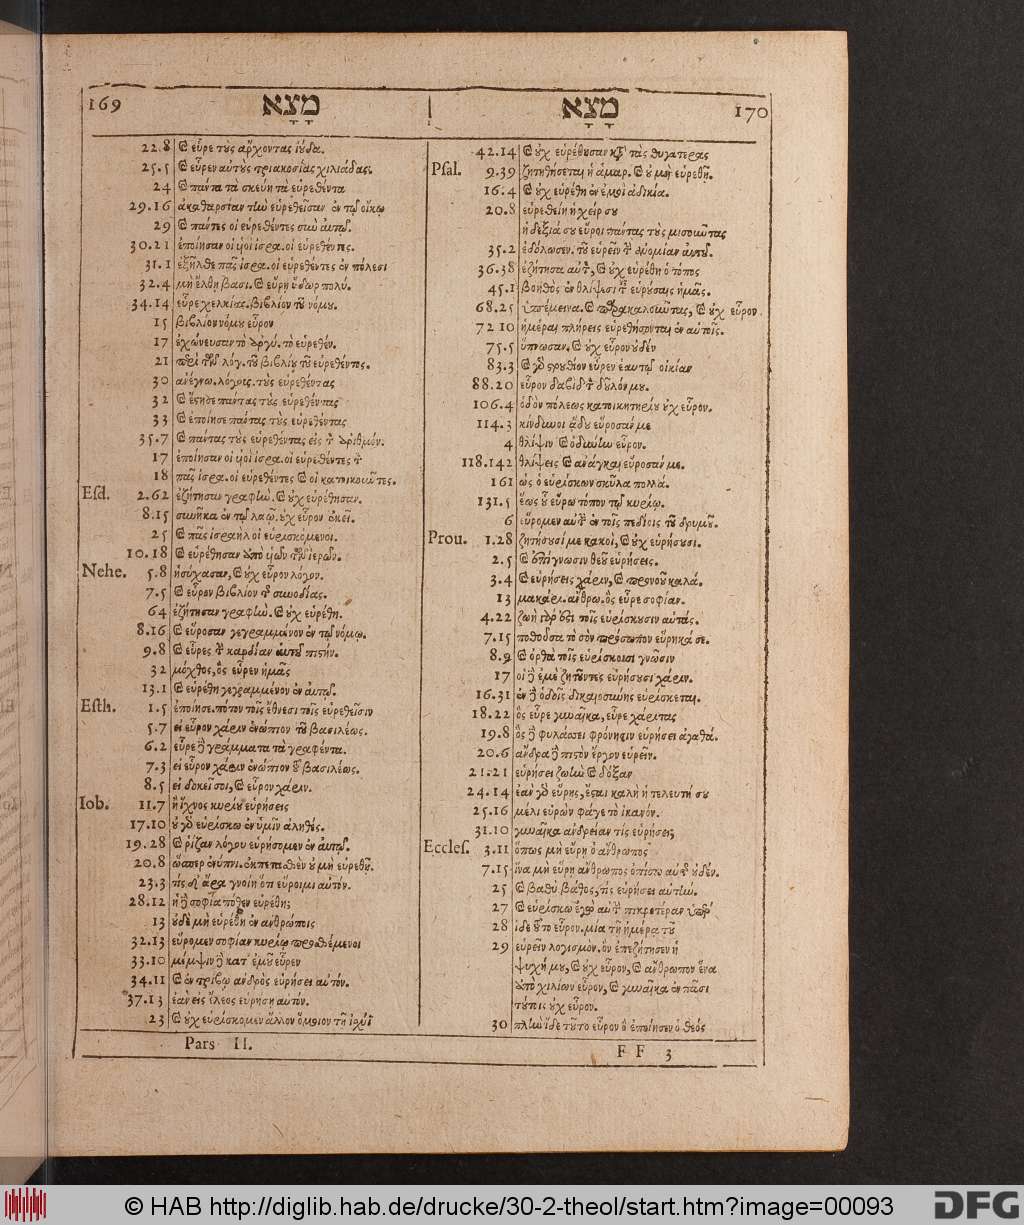 169 מָצָא
22.8 καὶ εὗρε τοὺς ἄρχοντας ἰούδα.
25.5 καὶ εὗρεν αὐτοὺς τριακοσίας χιλιάδας.
24 καὶ πάντα τὰ σκεύη τὰ εὑρεθέντα
29.16 ἀκαθαρσίαν τὴν εὑρεθεῖσαν ἐν τῷ οἴκῳ
29 καὶ πάντες οἱ εὑρεθέντες σὺν αὐτῷ.
30.21 ἐποίησαν οἱ υἱοὶ ἰσρα. οἱ εὑρεθέντες.
31.1 ἐξῆλθε πᾶς ἰσρα. οἱ εὑρεθέντες ἐν πόλεσι
32.4 μὴ ἔλθῃ βασι. καὶ εὕρῃ ὕδωρ πολύ.
34.14 εὗρε χελκίας. βιβλίον τοῦ νόμου.
15 βιβλίον νόμου εὗρον
17 ἐχώνευσαν τὸ ἀργύ. τὸ εὑρεθέν.
21 περὶ τῶν λόγ. τοῦ βιβλίου τοῦ εὑρεθέντος.
30 ἀνέγνω. λόγους. τοὺς εὑρεθέντας
32 καὶ ἔστησε πάντας τοὺς εὑρεθέντας
33 καὶ ἐποίησε πάντας τοὺς εὑρεθέντας
35.7 καὶ πάντας τοὺς εὑρεθέντας εἰς τὸν ἀριθμόν.
17 ἐποίησαν οἱ υἱοὶ ἰσρα. οἱ εὑρεθέντες τὸ
18 πᾶς ἰσρα. οἱ εὑρεθέντες καὶ οἱ κατοικοῦντες.
Esd. 2.62 ἐζήτησαν γραφὴν. καὶ οὐχ εὑρέθησαν.
8.15 συνῆκα ἐν τῷ λαῷ. οὐχ εὗρον ἐκεῖ.
25 καὶ πᾶς ἰσραὴλ οἱ εὑρισκόμενοι.
10.18 καὶ εὑρέθησαν ἀπὸ υἱῶν τῶν ἱερῶν.
Nehe. 5.8 ἡσύχασαν, καὶ οὐχ εὗρον λόγον.
7.5 καὶ εὗρον βιβλίον τῆς συνοδίας.
64 ἐζήτησαν γραφὴν. καὶ οὐχ εὑρέθη.
8.16 καὶ εὕροσαν γεγραμμένον ἐν τῷ νόμῳ.
9.8 καὶ εὗρες τὴν καρδίαν αὐτοῦ πιστήν.
32 μόχθος, ὃς εὗρεν ἡμᾶς
13.1 καὶ εὑρέθη γεγραμμένον ἐν αὐτῷ.
Esth. 1.5 ἐποίησε. πότον τοῖς ἔθνεσι τοῖς εὑρεθεῖσιν
5.7 εἰ εὗρον χάριν ἐνώπιον τοῦ βασιλέως.
6.2 εὗρε δὲ γράμματα τὰ γραφέντα.
7.3 εἰ εὗρον χάριν ἐνώπιον τοῦ βασιλέως.
8.5 εἰ δοκεῖ σοι, καὶ εὗρον χάριν.
Iob. 11.7 ἢ ἴχνος κυρίου εὑρήσεις
17.10 οὐ γὰρ εὑρίσκω ἐν ὑμῖν ἀληθές.
19.28 καὶ ῥίζαν λόγου εὑρήσομεν ἐν αὐτῷ.
20.8 ὥσπερ ἐνύπνι. ἐκπετασθὲν οὐ μὴ εὑρεθῇ.
23.3 τίς δ' ἄρα γνοίη ὅτι εὕροιμι αὐτόν.
28.12 ἡ δὲ σοφία πόθεν εὑρέθη;
13 οὐδὲ μὴ εὑρέθῃ ἐν ἀνθρώποις
32.13 εὕρομεν σοφίαν κυρίῳ προσθέμενοι
33.10 μέμψιν δὲ κατ' ἐμοῦ εὗρεν
34.11 καὶ ἐν τρίβῳ ἀνδρὸς εὑρήσει αὐτόν.
37.13 ἐὰν εἰς ἔλεος εὑρήσῃ αὐτόν.
23 καὶ οὐχ εὑρίσκομεν ἄλλον ὅμοιον τῇ ἰσχύϊ
Pars II.
מָצָא 170
42.14 καὶ οὐχ εὑρέθησαν κατὰ τὰς θυγατέρας
Psal. 9.39 ζητηθήσεται ἡ ἁμαρ. καὶ οὐ μὴ εὑρεθῇ.
16.4 καὶ οὐχ εὑρέθη ἐν ἐμοὶ ἀδικία.
20.8 εὑρεθείη ἡ χείρ σου
ἡ δεξιά σου εὕροι πάντας τοὺς μισοῦντας
35.2 ἐδόλωσεν. τοῦ εὑρεῖν τὴν ἀνομίαν αὐτοῦ.
36.38 ἐζήτησα αὐτὸν, καὶ οὐχ εὑρέθη ὁ τόπος
45.1 βοηθὸς ἐν θλίψεσι ταῖς εὑρούσαις ἡμᾶς.
68.25 ὑπέμεινα. καὶ παρακαλοῦντας, καὶ οὐχ εὗρον
72 10 ἡμέραι πλήρεις εὑρεθήσονται ἐν αὐτοῖς.
75.5 ὕπνωσαν. καὶ οὐχ εὗρον οὐδέν
83.3 καὶ γὰρ στρουθίον εὗρεν ἑαυτῷ οἰκίαν
88.20 εὗρον δαβὶδ τὸν δοῦλόν μου.
106.4 ὁδὸν πόλεως κατοικητηρίου οὐχ εὗρον.
114.3 κίνδυνοι ᾅδου εὕροσάν με
4 θλίψιν καὶ ὀδύνην εὗρον.
118.142 θλίψεις καὶ ἀνάγκαι εὕροσάν με.
161 ὡς ὁ εὑρίσκων σκῦλα πολλά.
131.5 ἕως οὗ εὕρω τόπον τῷ κυρίῳ.
6 εὕρομεν αὐτὴν ἐν τοῖς πεδίοις τοῦ δρυμοῦ.
Prou. 1.28 ζητήσουσί με κακοὶ, καὶ οὐχ εὑρήσουσι.
2.5 καὶ ἐπίγνωσιν θεοῦ εὑρήσεις.
3.4 καὶ εὑρήσεις χάριν, καὶ προνοοῦ καλά.
13 μακάρι. ἄνθρω. ὃς εὗρε σοφίαν.
4.22 ζωὴ γάρ ἐστι τοῖς εὑρίσκουσιν αὐτάς.
7.15 ποθοῦσα τὸ σὸν πρόσωπον εὕρηκά σε.
8.9 καὶ ὀρθὰ τοῖς εὑρίσκουσι γνῶσιν
17 οἱ δὲ ἐμὲ ζητοῦντες εὑρήσουσι χάριν.
16.31 ἐν δὲ ὁδοῖς δικαιοσύνης εὑρίσκεται.
18.22 ὃς εὗρε γυναῖκα, εὗρε χάριτας
19.8 ὃς δὲ φυλάσσει φρόνησιν εὑρήσει ἀγαθά.
20.6 ἄνδρα δὲ πιστὸν ἔργον εὑρεῖν.
21.21 εὑρήσει ζωὴν καὶ δόξαν
24.14 ἐὰν γὰρ εὕρῃς, ἔσται καλὴ ἡ τελευτή σου
25.16 μέλι εὑρὼν φάγε τὸ ἱκανόν.
31.10 γυναῖκα ἀνδρείαν τίς εὑρήσει;
Eccles. 3.11 ὅπως μὴ εὕρῃ ὁ ἄνθρωπος
7.15 ἵνα μὴ εὕρῃ ἄνθρωπος ὀπίσω αὐτοῦ οὐδέν.
25 καὶ βαθὺ βάθος, τίς εὑρήσει αὐτήν.
27 καὶ εὑρίσκω ἐγὼ αὐτὴν πικροτέραν ὑπὲρ
28 ἴδε τοῦτο εὗρον. μία τῇ ἡμέρᾳ τοῦ
29 εὑρεῖν λογισμὸν. ὃν ἐπεζήτησεν ἡ
ψυχή μου, καὶ οὐχ εὗρον, καὶ ἄνθρωπον ἕνα
ἀπὸ χιλίων εὗρον, καὶ γυναῖκα ἐν πᾶσι
τούτοις οὐχ εὗρον.
30 πλὴν ἴδε τοῦτο εὗρον ὃ ἐποίησεν ὁ θεός
F F 3
© HAB http://diglib.hab.de/drucke/30-2-theol/start.htm?image=00093
DFG